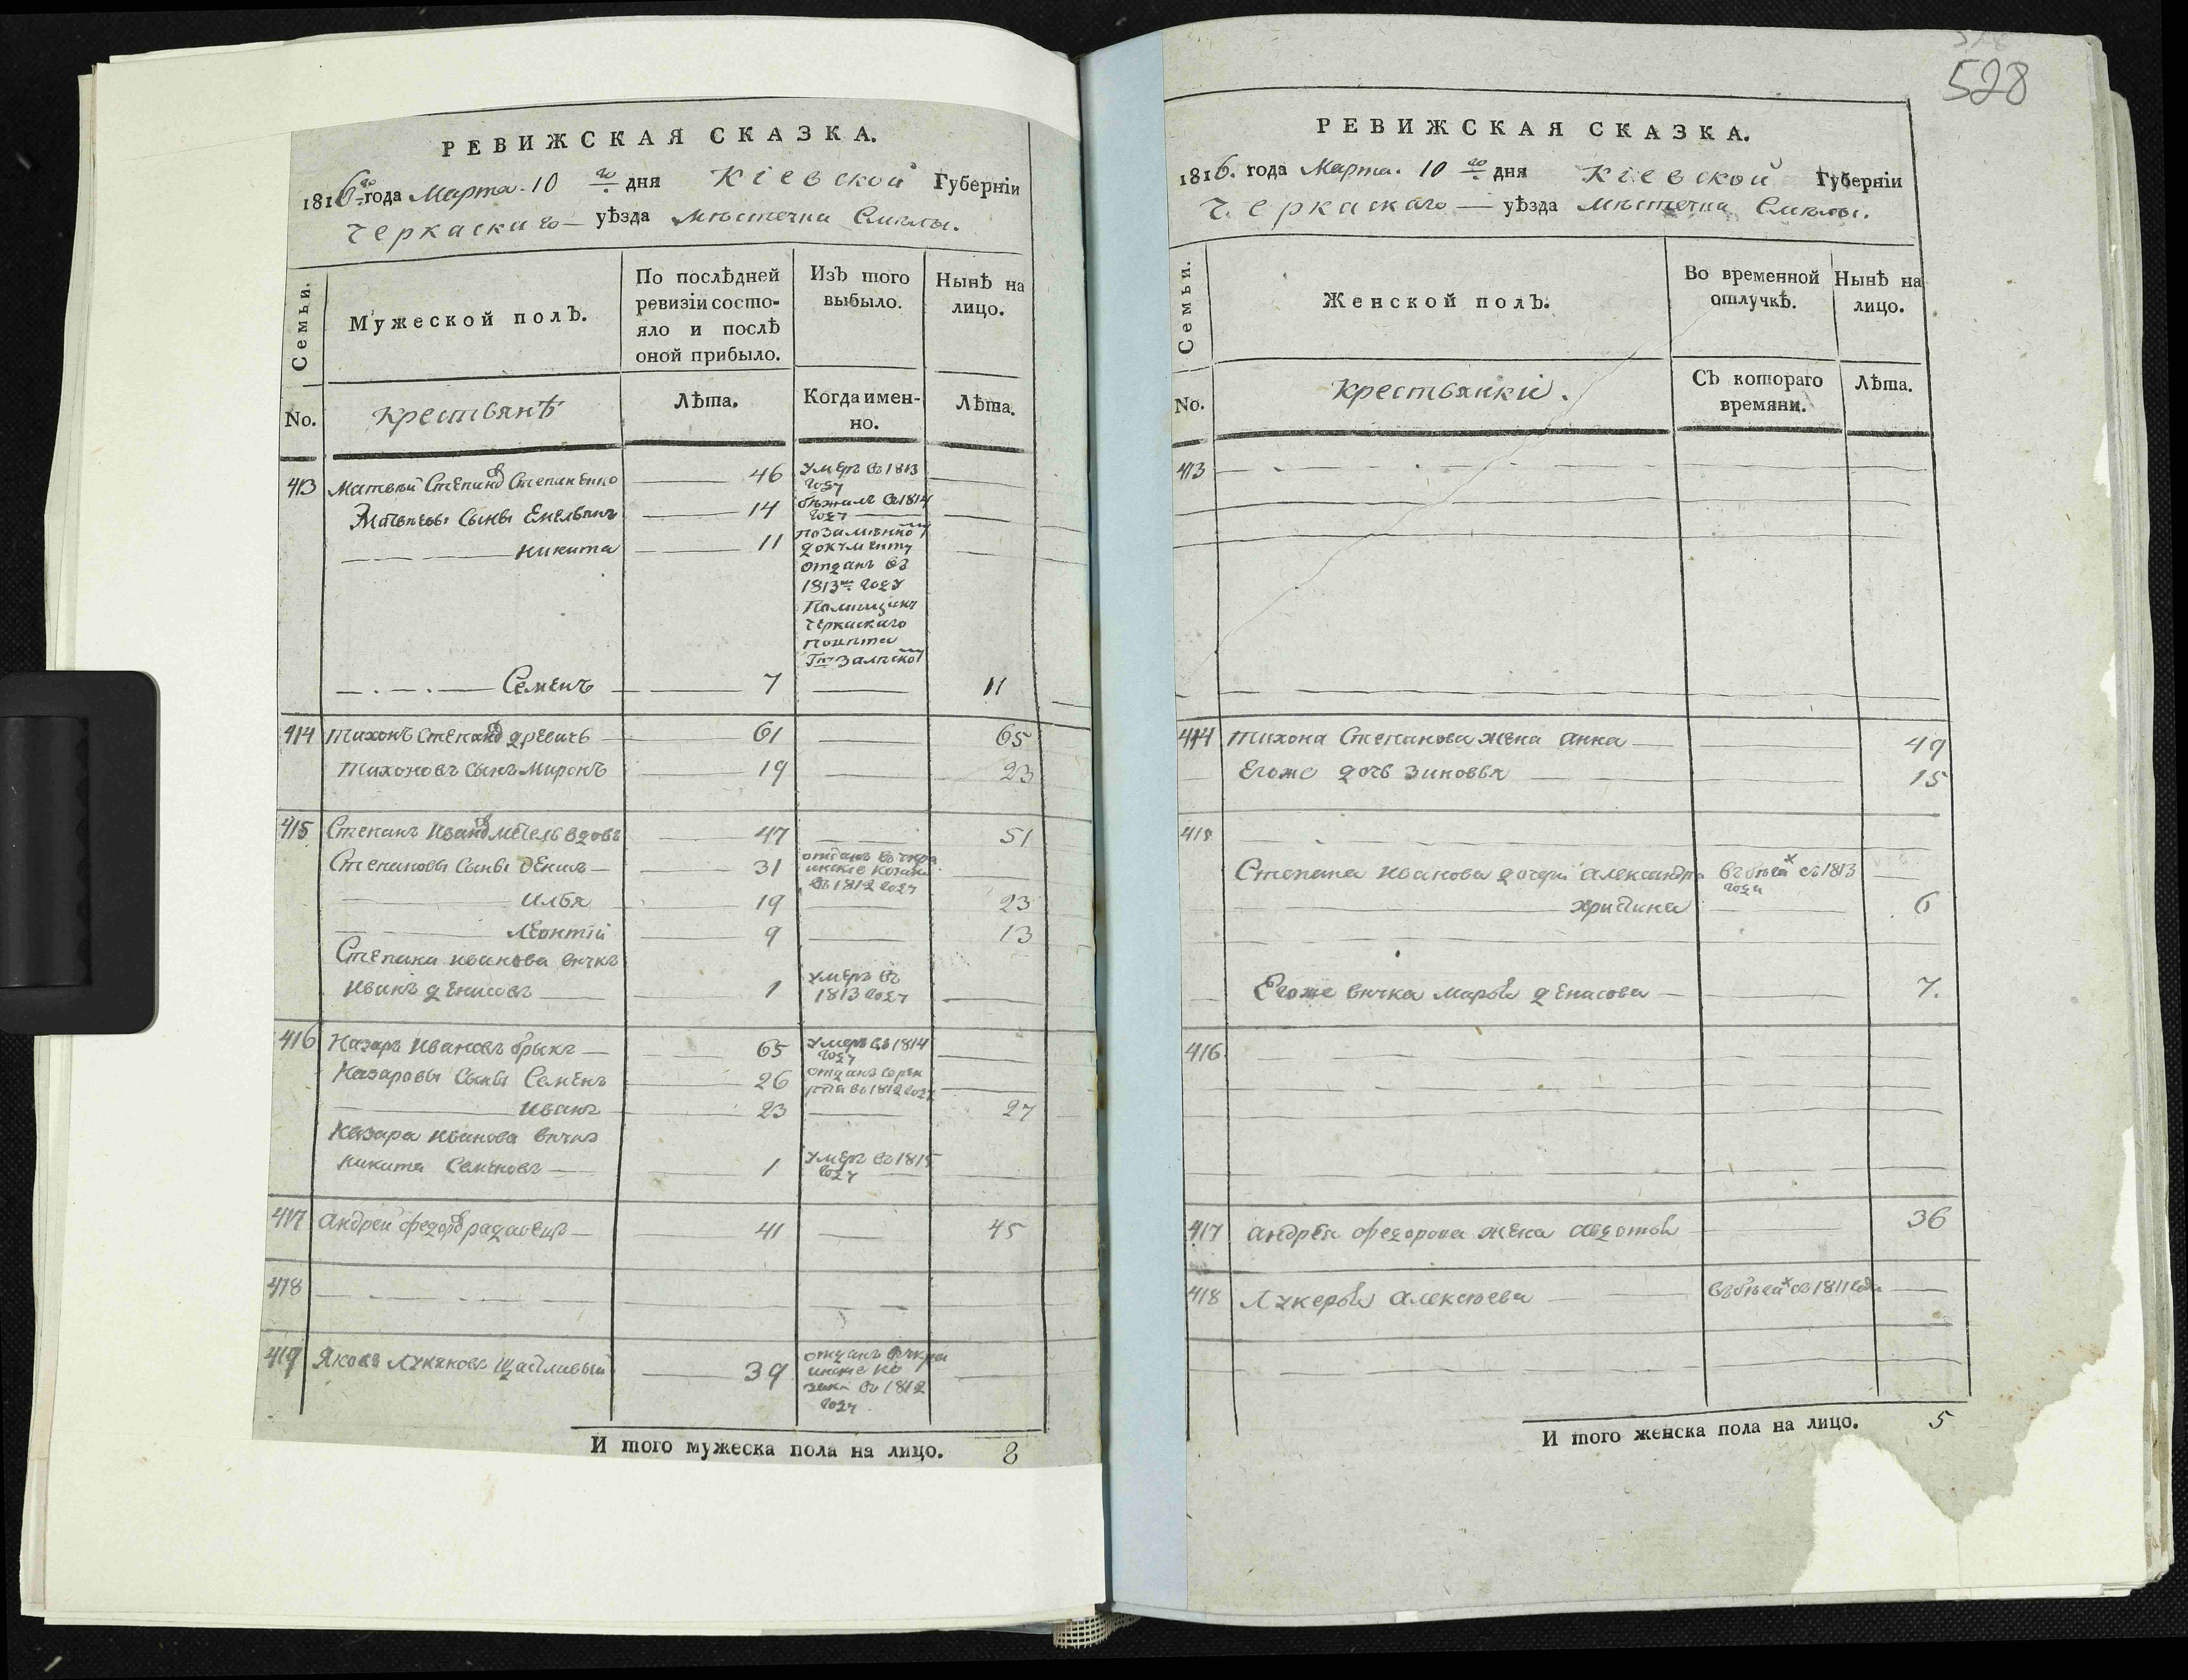 РЕВИЖСКАЯ СКАЗКА.
1816го года Марта 10 го дня Кіевской Губерніи
Черкаскаго уѣзда мѣстечка Смѣлы.
Семьи.
Мужеской полЪ.
По послѣдней ревизіи состо-
яло и послѣ оной прибыло.
ИзЪ того выбыло.
Нынѣ на лицо.
No.
крестьянѣ
Лѣта.
Когда имен-
но.
Лѣта.
413 Матвѣй Степановъ Степаненко 46 умеръ въ 1813 году
Матвѣевы Сыны Емельянъ 14 бѣжалъ въ 1814 году
никита 11 по Заміенному документу отданъ въ 1813м году Помѣщику Черкаскаго повѣта
Семенъ 7 11
414 Тихонъ Степановъ 61 65
Тихоновъ Сынъ Миронъ 19 23
415 Степанъ Ивановъ вдовъ 47 51
Степановы Сыны Денисъ 31 отданъ въ укра инские козаки въ 1812 году
Илья 19 23
Леонтій 9 13
Степана иванова внукъ
Иванъ денисовъ 1 умеръ въ 1813 году
416 Назаръ Ивановъ брыкъ 65 умеръ въ 1814 году
Назаровы Сыны Семенъ 26 отданъ в рек руты въ 1812 году
Иванъ 23 27
Назара Иванова внукъ
Никита Семеновъ 1 умеръ въ 1815 году
417 Андрей федоровъ 41 45
418
419 Яковъ Лукяновъ щасливый 39 отданъ въ укра инские ко заки въ 1812 году
И того мужеска пола на лицо. 8
528
РЕВИЖСКАЯ СКАЗКА.
1816. года Марта. 10 го дня Кіевской Губерніи
Черкаскаго уѣзда мѣстечка Смѣлы.
Семьи.
Женской полЪ.
Во временной отлучкѣ.
Нынѣ на лицо.
No.
крестьянки.
СЪ котораго времяни.
Лѣта.
413
414 Тихона Степанова жена Анна 49
Егоже дочь Зиновья 15
415
Степана Иванова дочери Александра въ бѣгах съ 1813 года
христина 6
Егоже внука Марья денисова 7.
416
417 андрея федорова жена авдотья 36
418 Лукерья Алексѣева въ бѣгах съ 1811 года
И того женска пола на лицо. 5